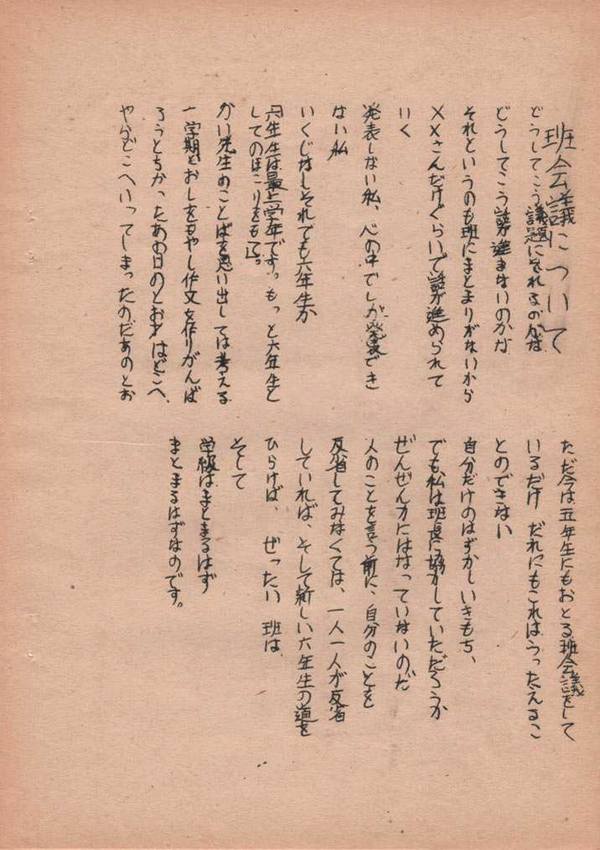 班会議について
どうしてこう議題にそれるのかな
どうしてこう話が進まないのかな
それというのも班にまとまりがないから
××さんだけぐらいで話が進められて
いく
発表しない私、心の中でしか発表でき
ない私
いくじなしそれでも六年生か
「六年生は最上学年です。もっと六年生と
してのほこりをもて」。
かい先生のことばを思い出しては考える
一学期とおしをもやし作文を作りがんば
ろうとちかったあの日のとお才はどこへ、
やらどこへいってしまったのだあのとお
ただ今は五年生にもおとる班会議をして
いるだけ だれにもこれはうったえるこ
とのできない
自分だけのはずかしいきもち、
でも私は班長に協力していただろうか
ぜんぜん力にはなっていないのだ
人のことを言う前に、自分のことを
反省してみなくては、一人一人が反省
していれば、そして新しい六年生の道を
ひらけば、ぜったい 班は
そして
学級はまとまるはず
まとまるはずなのです。